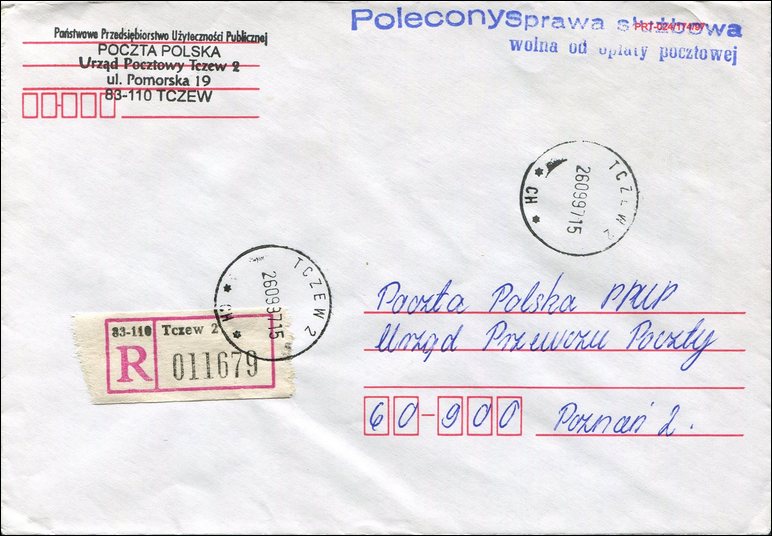 Państwowe Przedsiębiorstwo Użyteczności Publicznej
POCZTA POLSKA
Urząd Pocztowy Tczew 2
ul. Pomorska 19
83-110 TCZEW
Polecony sprawa służbowa
wolna od opłaty pocztowej
TCZEW 2
26099715
CH
TCZEW 2
26099715
CH
83-110 Tczew 2
R 011679
Poczta Polska PPUP
Urząd Przewozu Poczty
60-900 Poznań 2.